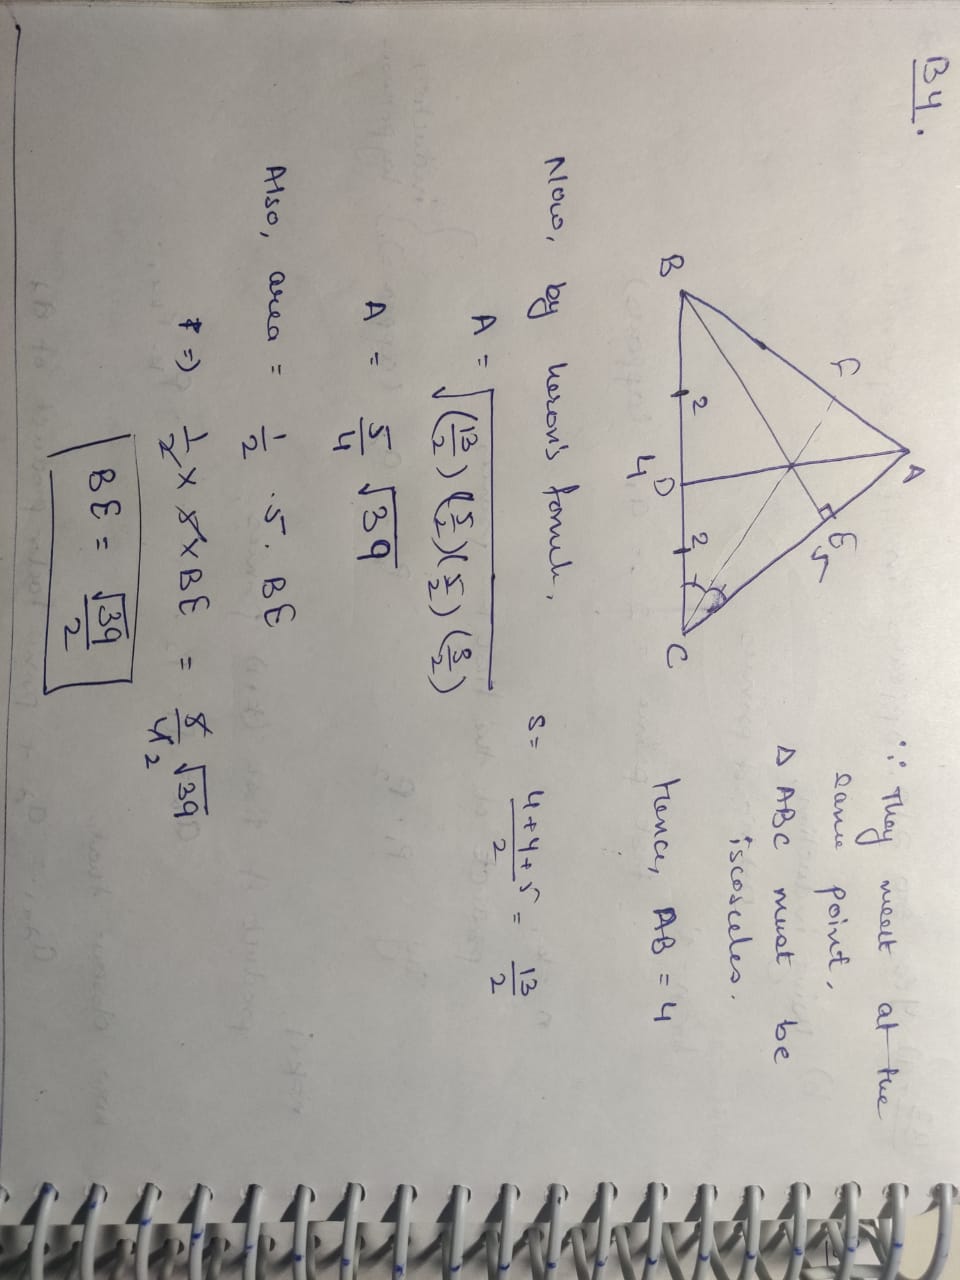 B4.
A
F
E
5
B
2
D
2
C
4
∵ They meet at the
same point,
Δ ABC must be
iscosceles.
Hence, AB = 4
Now, by heron's fomul,
S = 4+4+5/2 = 13/2
A = √(13/2)(5/2)(5/2)(3/2)
A = 5/4 √39
Also, area = 1/2 · 5 · BE
⇒ 1/2 × 5 × BE = 5/4 2 √39
BE = √39/2